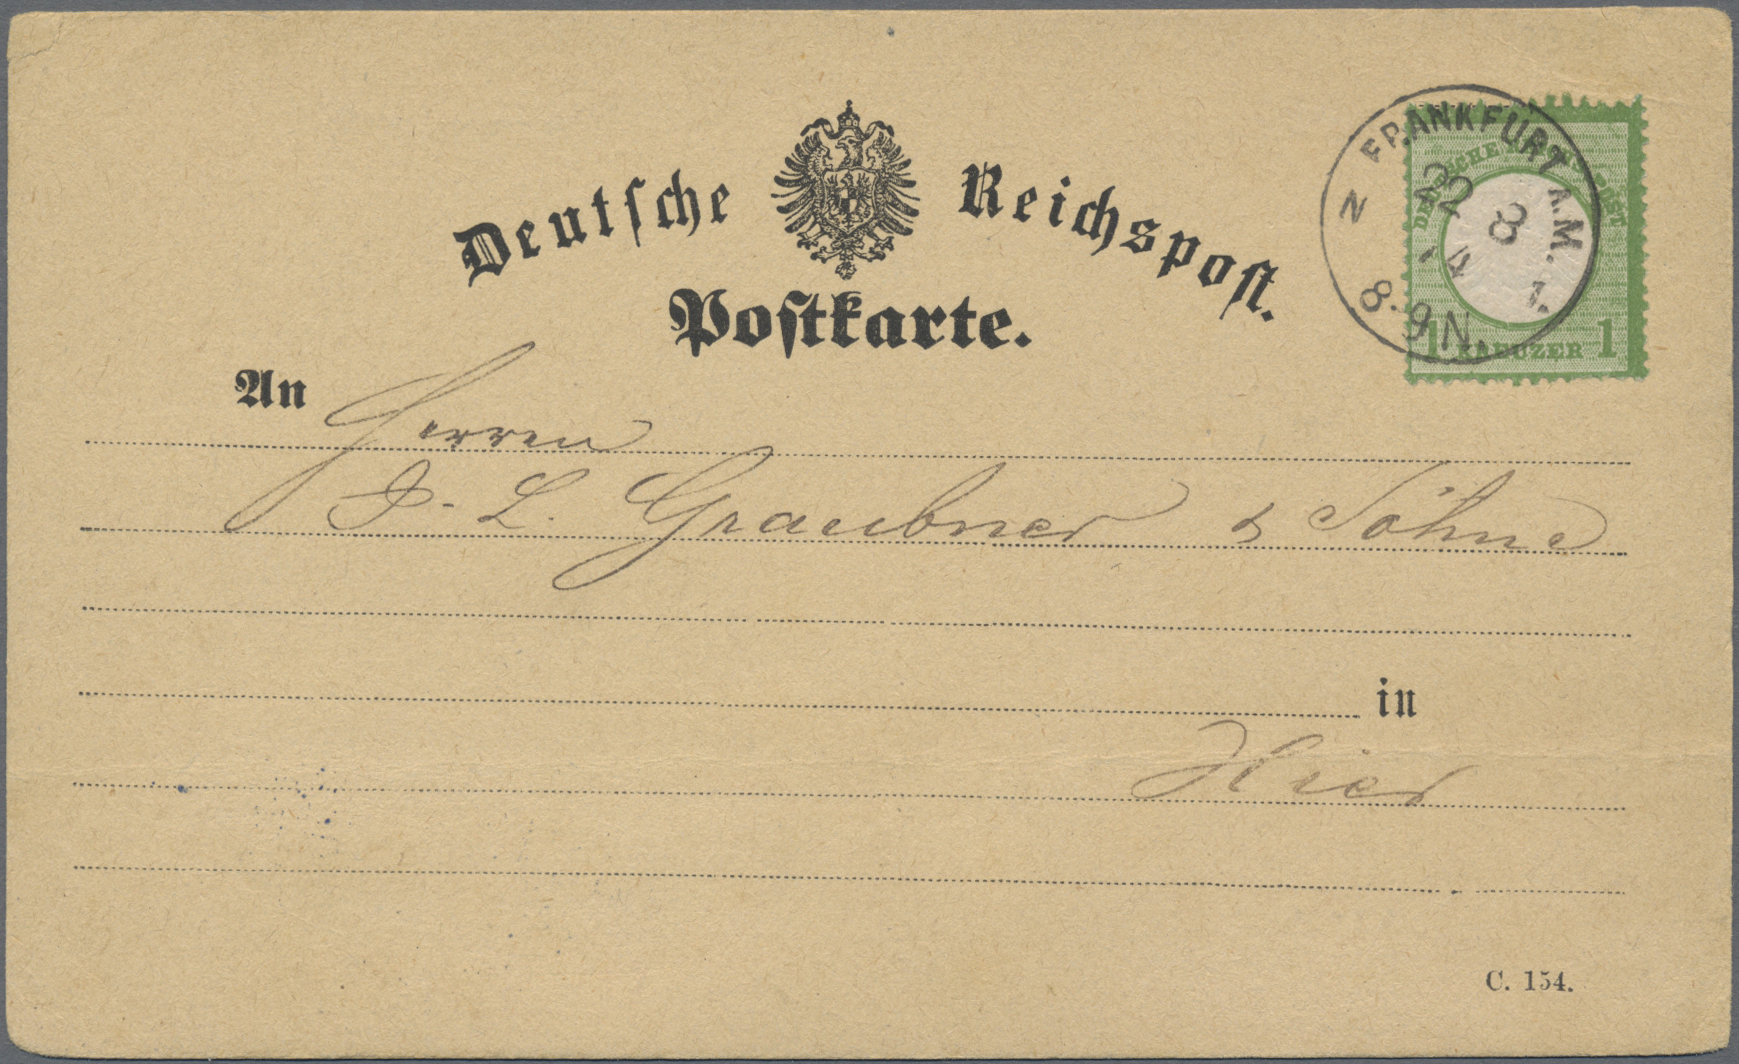 Deutsche Reichspost.
Postkarte.
FRANKFURT A.M.
N
22 8
74
8-9 N.
1.
DEUTSCHE REICHS-POST
1 KREUZER 1
An
Herren
J. L. Graubner & Söhne
in
Hier
C. 154.